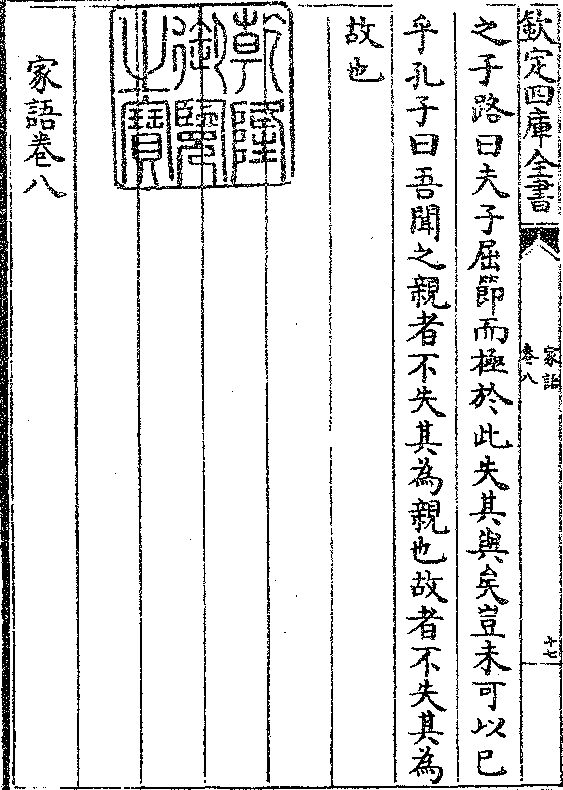 欽定四庫全書
家語
卷八
十七
之子路曰夫子屈節而極於此失其與矣豈未可以已
乎孔子曰吾聞之親者不失其為親也故者不失其為
故也
乾隆
御覽
之寶
家語卷八